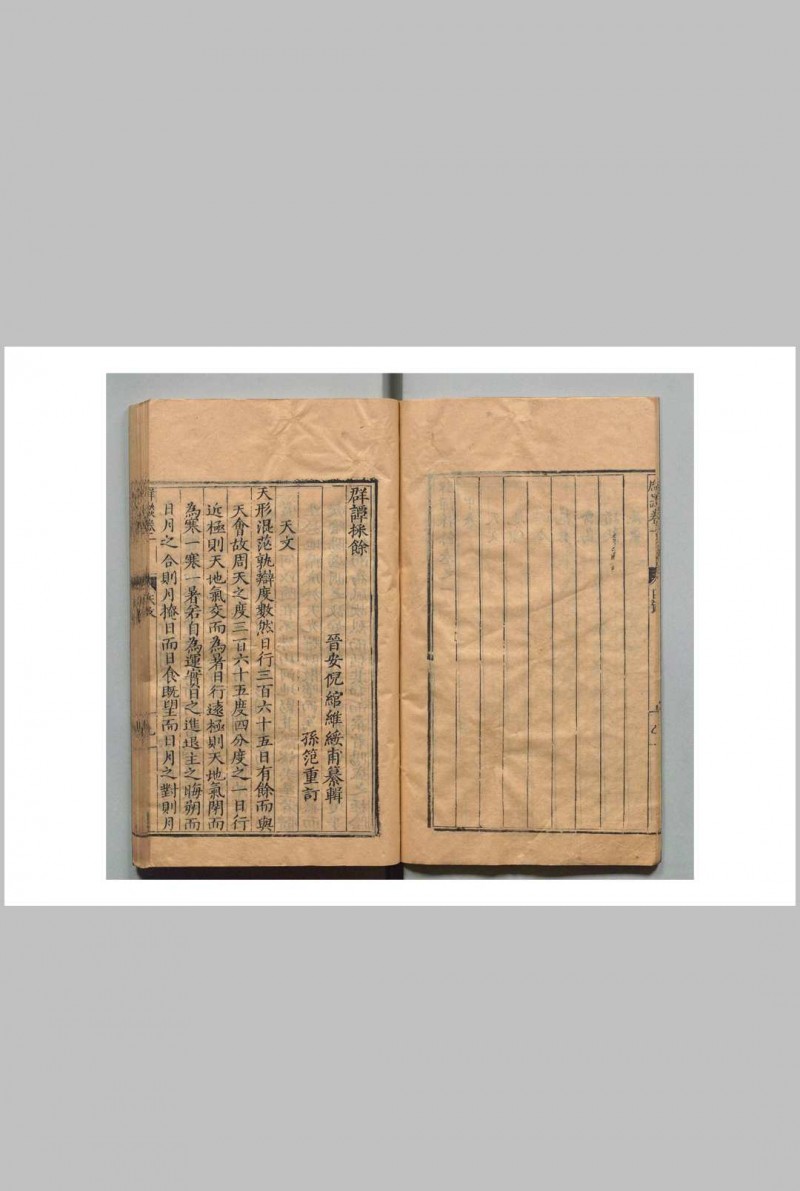 群譚採餘
晉安倪綰維綏甫纂輯
孫范重訂
天文
天形混茫孰辯度數然日行三百六十五日有餘而與
天會故周天之度三百六十五度四分度之一日行
近極則天地氣交而為暑日行遠極則天地氣閉而
為寒一寒一暑若自為運實日之進退主之晦朔而
日月之合則月掩日而日食既望而日月之對則月
群談卷一
天文